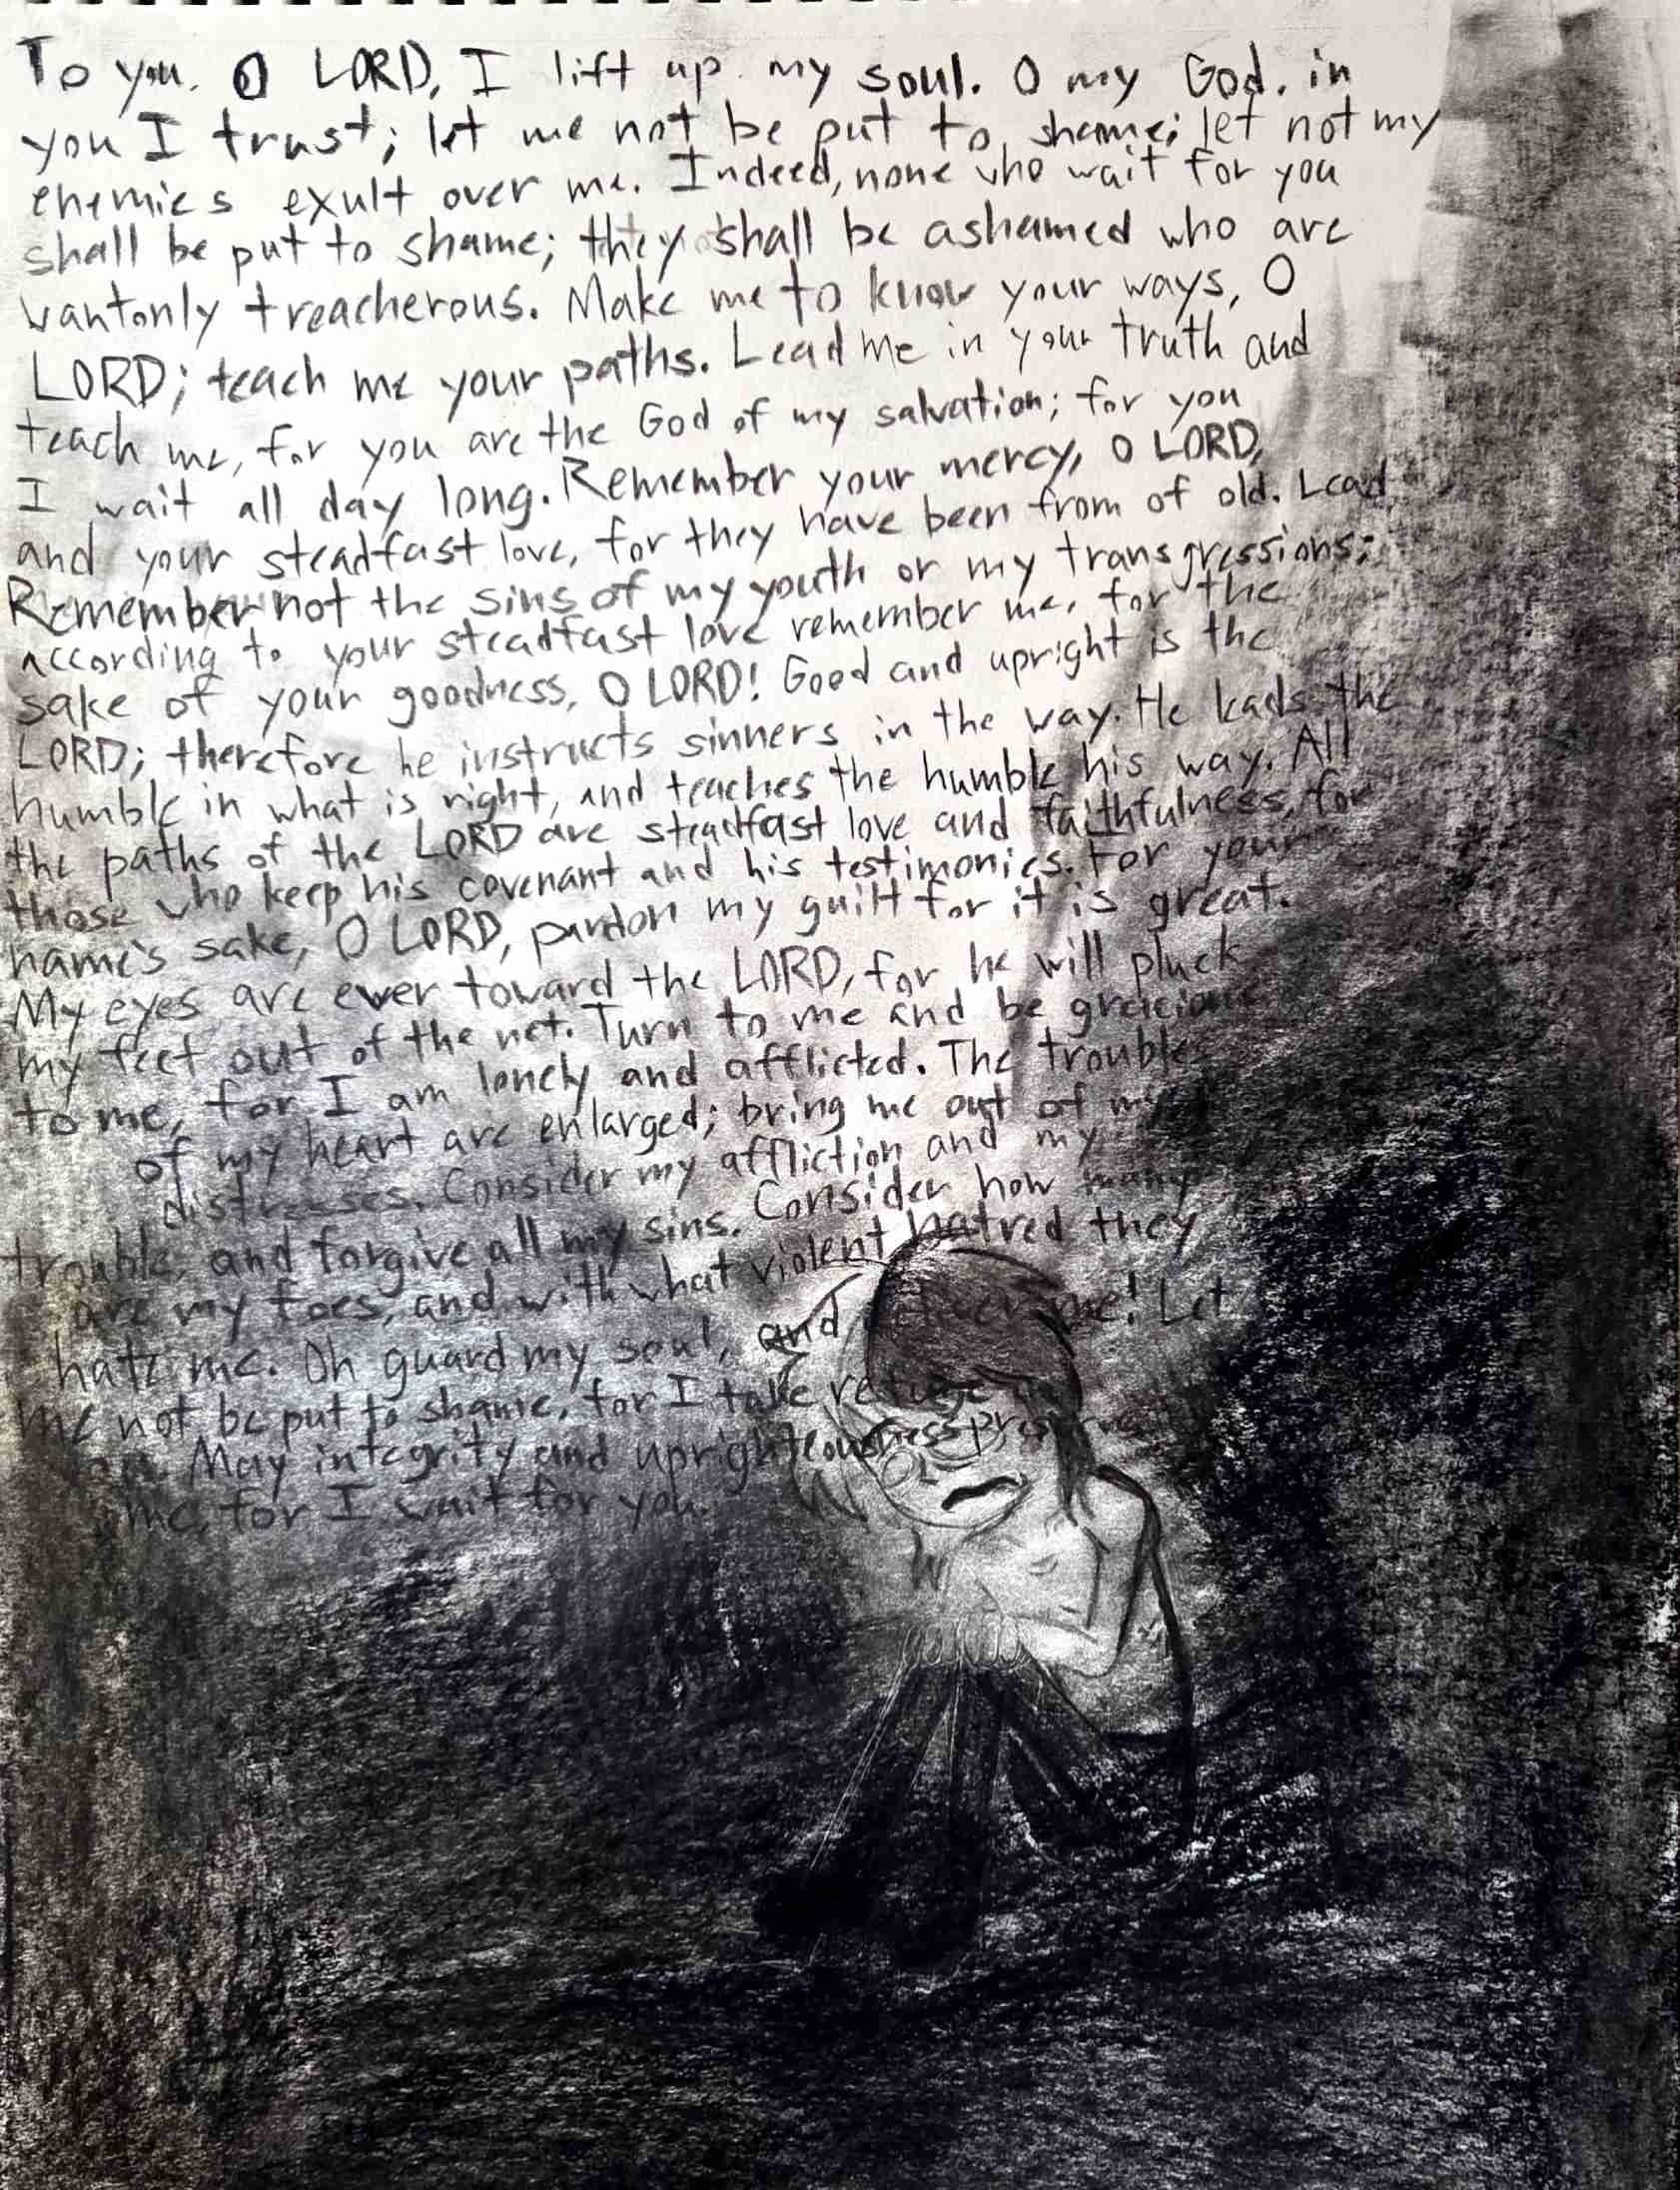 To you, O LORD, I lift up my soul. O my God, in
you I trust; let me not be put to shame; let not my
enemies exult over me. Indeed, none who wait for you
shall be put to shame; they shall be ashamed who are
wantonly treacherous. Make me to know your ways, O
LORD; teach me your paths. Lead me in your truth and
teach me, for you are the God of my salvation; for you
I wait all day long. Remember your mercy, O LORD,
and your steadfast love, for they have been from of old. Lead
Remember not the sins of my youth or my transgressions;
according to your steadfast love remember me, for the
sake of your goodness, O LORD! Good and upright is the
LORD; therefore he instructs sinners in the way. He leads the
humble in what is right, and teaches the humble his way. All
the paths of the LORD are steadfast love and faithfulness, for
those who keep his covenant and his testimonies. For your
name's sake, O LORD, pardon my guilt for it is great.
My eyes are ever toward the LORD, for he will pluck
my feet out of the net. Turn to me and be gracious
to me, for I am lonely and afflicted. The troubles
of my heart are enlarged; bring me out of my
distresses. Consider my affliction and my
trouble, and forgive all my sins. Consider how many
are my foes, and with what violent hatred they
hate me. Oh guard my soul, and deliver me! Let
me not be put to shame, for I take refuge
you. May integrity and uprighteousness preserve
me, for I wait for you.